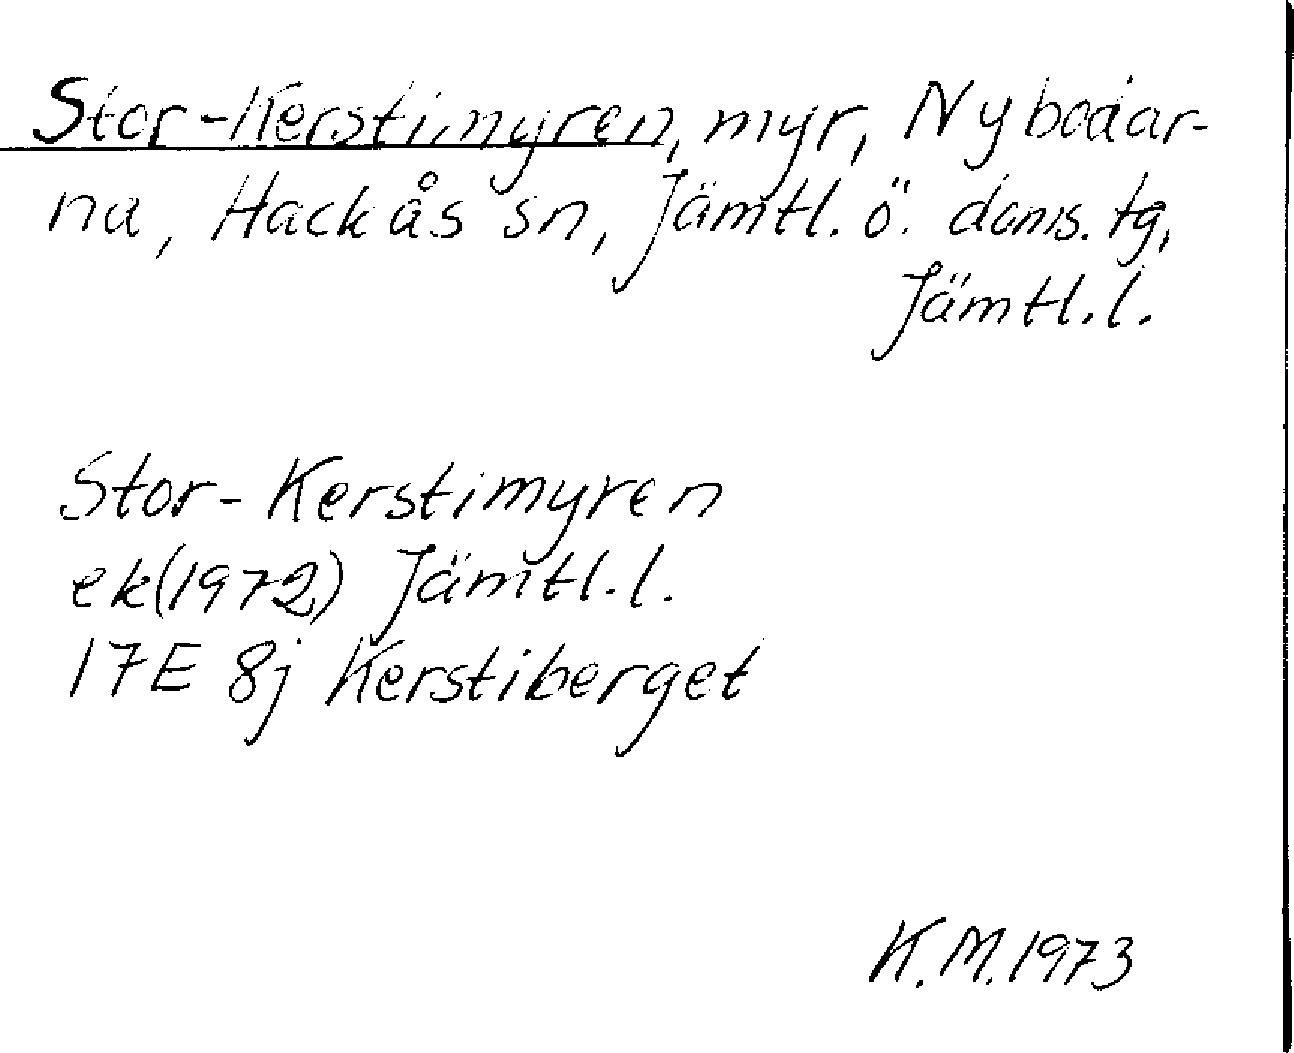 Stor-Kerstimyren, myr, Nybodar-
na, Hackås sn, Jämtl. ö. doms. tg,
Jämtl. l.
Stor-Kerstimyren
ek(1972) Jämtl. l.
17E 8j Kerstiberget
K.M. 1973